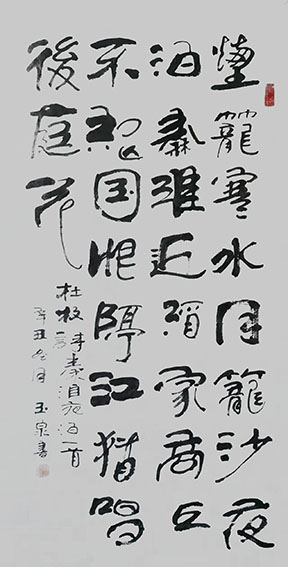 煙籠寒水月籠沙夜
泊秦淮近酒家商女
不知亡国恨隔江猶唱
後庭花
杜牧诗秦淮夜泊一首
辛丑冬月玉泉書